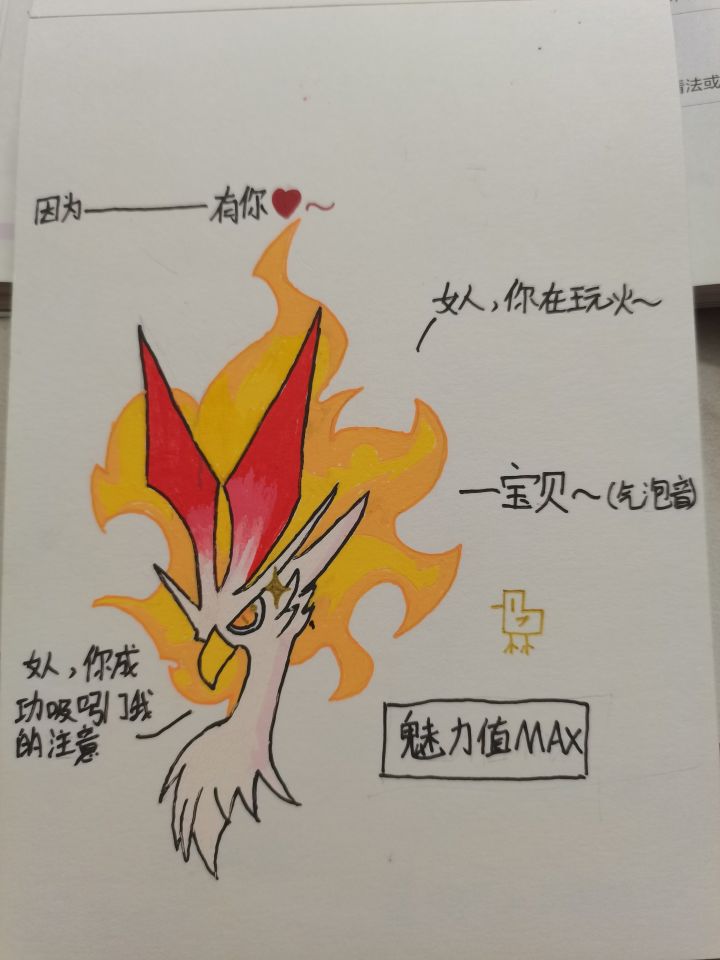 因为————有你❤~
女人,你在玩火~
一宝贝~(气泡音)
女人,你成
功吸吲门我
的注意
魅力值MAX